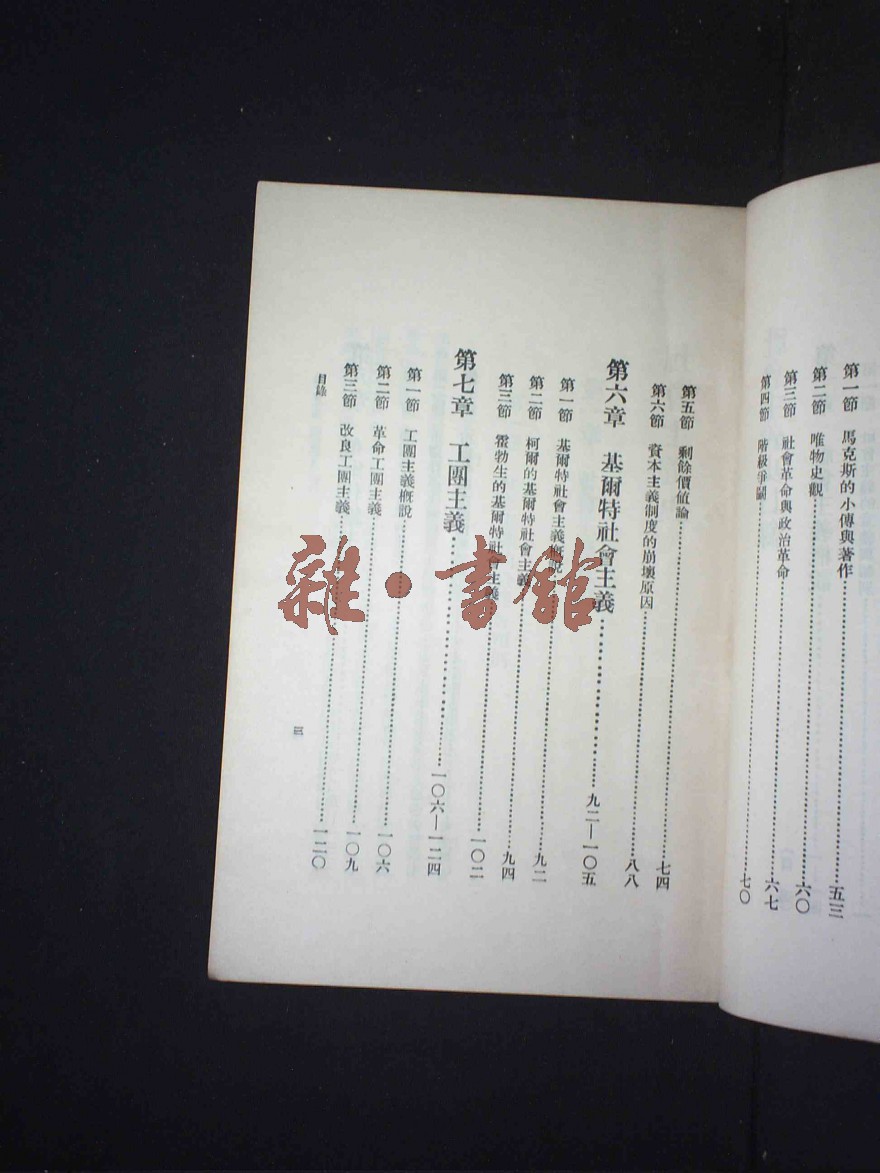 第一節 馬克斯的小傳與著作……五三
第二節 唯物史觀……六〇
第三節 社會革命與政治革命……六七
第四節 階級爭鬭……七〇
第五節 剩餘價値論……七四
第六節 資本主義制度的崩壞原因……八八
第六章 基爾特社會主義……九二—一〇五
第一節 基爾特社會主義槪說……九二
第二節 柯爾的基爾特社會主義……九四
第三節 霍勃生的基爾特社會主義……一〇二
第七章 工團主義……一〇六—一二四
第一節 工團主義槪說……一〇六
第二節 革命工團主義……一〇九
第三節 改良工團主義……一二〇
目錄
三
雜·書館